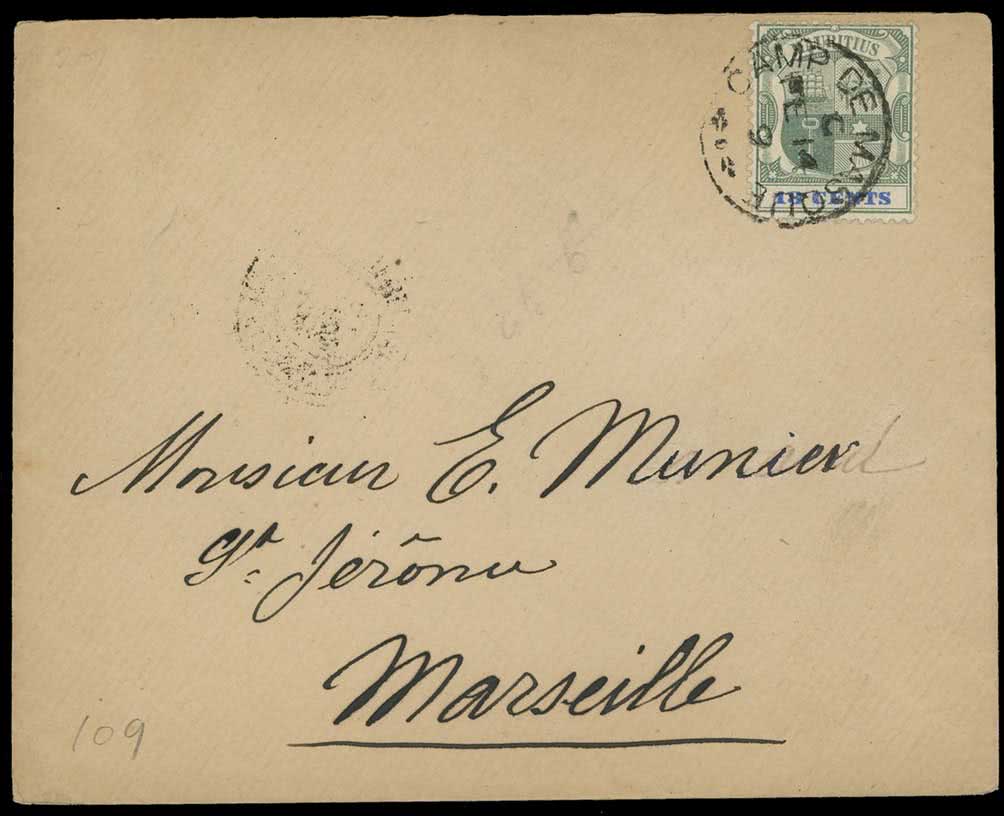 MAURITIUS
18 CENTS
CAMP DE MASQUE
C
FE 14
Monsieur E. Munier
St. Jérôme
Marseille
109